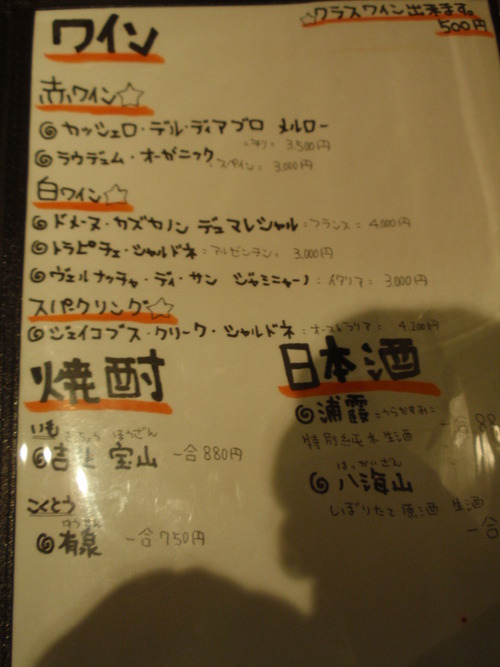 ワイン
☆グラスワイン出来ます。
500円
赤ワイン☆
カッシェロ・デル・ディアブロ メルロー
:チリ: 3,500円
ラウデュム・オーガニック
:スペイン: 3,000円
白ワイン☆
ドメーヌ・カズヤノン デュマレシャル:フランス: 4,000円
トラピチェ・シャルドネ:アルゼンチン: 3,000円
ヴェルナッチャ・ディ・サン ジャミニャーノ:イタリア: 3,000円
スパークリング☆
ジェイコブス・クリーク・シャルドネ:オーストラリア: 4,200円
焼酎
いも
ほうざん
宝山 一合 880円
こくとう
ゆうせん
有泉 一合 750円
日本酒
浦霞:うらかすみ: 一合
特別純米生酒
はっかいさん
八海山
しぼりたて原酒 生酒
一合